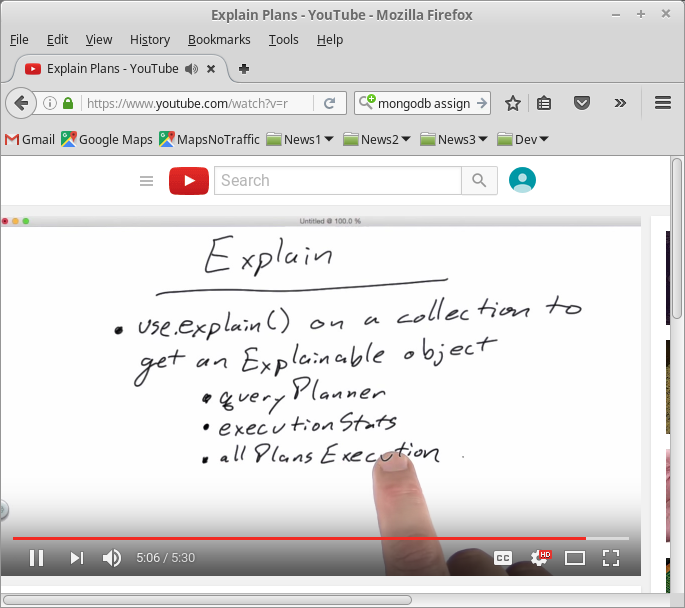 Explain Plans - YouTube - Mozilla Firefox
File Edit View History Bookmarks Tools Help
Explain Plans - YouTube
https://www.youtube.com/watch?v=r mongodb assign
Gmail Google Maps MapsNoTraffic News1 News2 News3 Dev
Search
Untitled @ 100.0 %
Explain
• use.explain() on a collection to
get an Explainable object
• queryPlanner
• executionStats
• allPlansExecution
5:06 / 5:30 CC HD